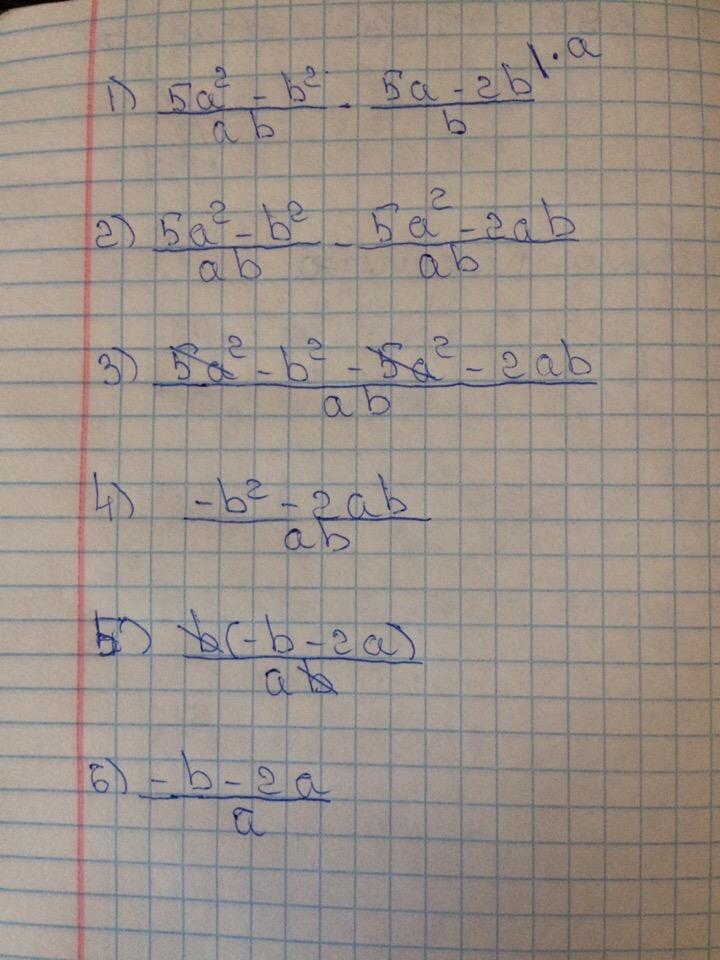 1) (5a² - b²)/(ab) - (5a - 2b)/(b) \·a
2) (5a² - b²)/(ab) - (5a² - 2ab)/(ab)
3) (5a² - b² - 5a² - 2ab)/(ab)
4) (-b² - 2ab)/(ab)
5) (b(-b - 2a))/(ab)
6) (-b - 2a)/(a)